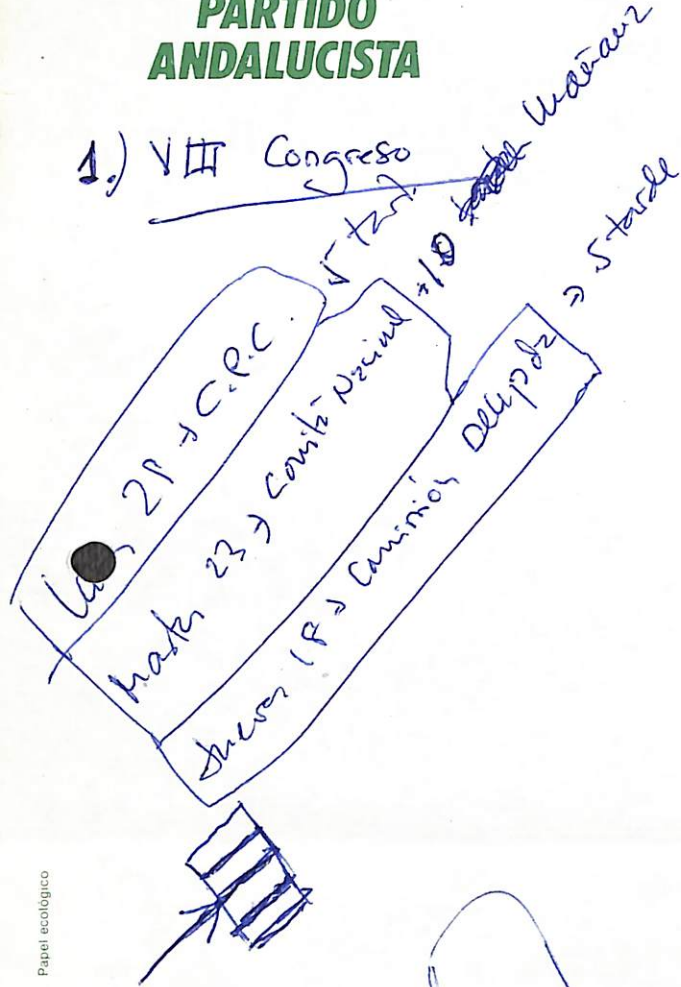 PARTIDO
ANDALUCISTA
1.) VIII Congreso
→ C.P.C. 5 tard.
Martes 23 → Comité Nacional → 10 mañana
Jueves 18 → Comisión Delegada → 5 tarde
Papel ecológico